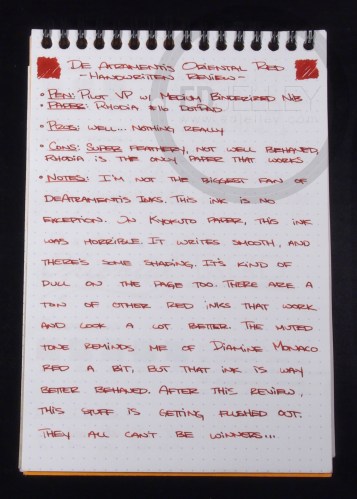 De Atramentis Oriental Red
- Handwritten Review -
• Pen: Pilot VP w/ Medium Binderized Nib
• Paper: Rhodia #16 DotPad
• Pros: Well... Nothing Really
• Cons: Super Feathery, Not Well Behaved,
Rhodia is the only paper that works
• Notes: I'm not the biggest fan of
DeAtramentis Inks. This ink is no
exception. On Kyokuto paper, this ink
was horrible. It writes smooth, and
there's some shading. It's kind of
dull on the page too. There are a
ton of other red inks that work
and look a lot better. The muted
tone reminds me of Diamine Monaco
Red a bit, but that ink is way
better behaved. After this review,
this stuff is getting flushed out.
They all can't be winners...